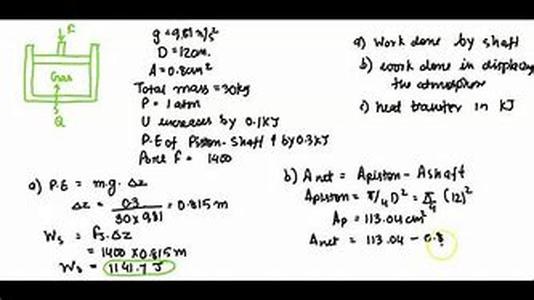 F
Gas
Q
g = 9.81 m/s²
D = 12cm.
A = 0.8cm²
Total mass = 30kg
P = 1 atm
U increases by 0.1KJ
P.E of Piston-Shaft ↑ by 0.3KJ
Force F = 1400
a) Work done by shaft
b) work done in displacing
the atmospher
c) heat transfer in KJ
a) P.E = m.g. Δz
Δz = 0.3 / 30 × 9.81 = 0.815 m
Ws = Fs.Δz
= 1400 × 0.815 m
Ws = 1141.7 J
b) Anet = Apiston - Ashaft
Apiston = π/4 D² = π/4 (12)²
Ap = 113.04 cm²
Anet = 113.04 - 0.8